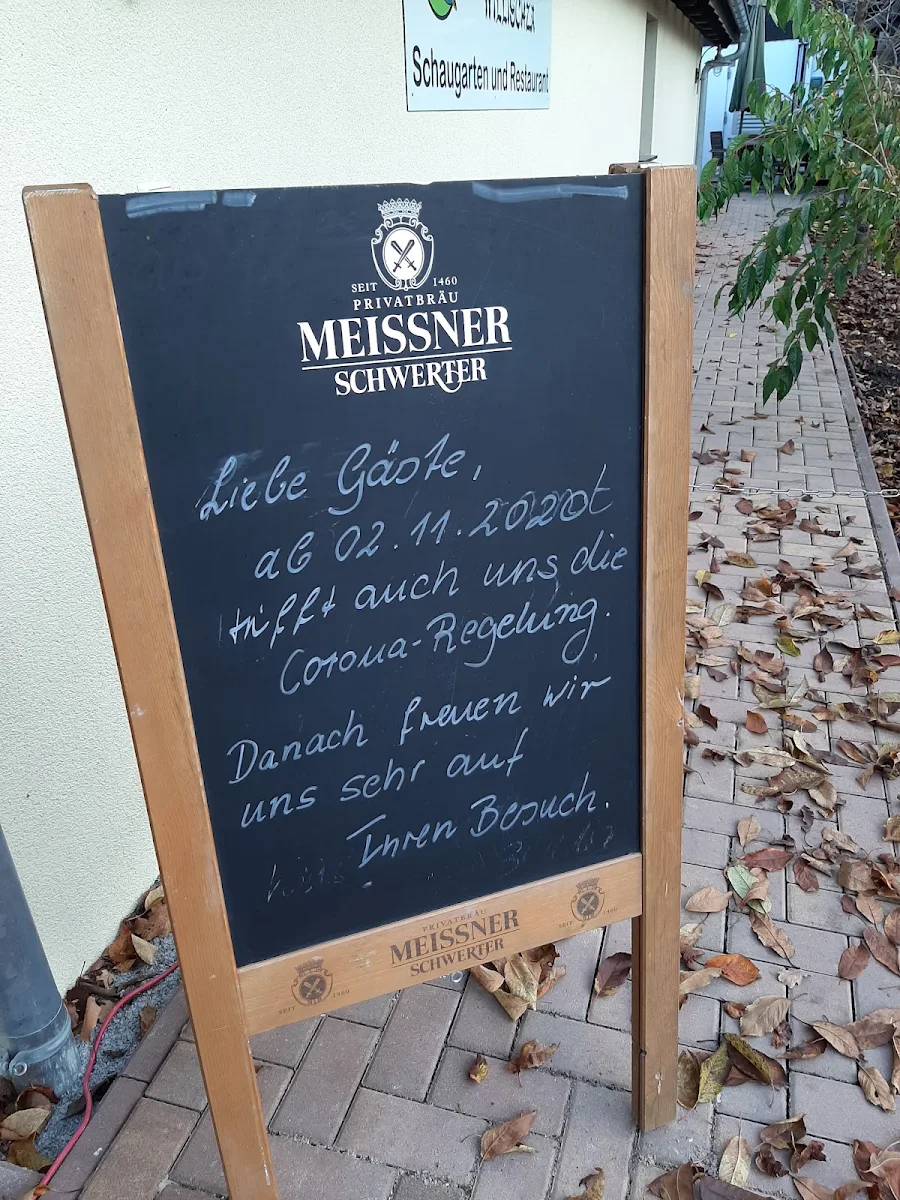 WILLISCHZA
Schaugarten und Restaurant
SEIT 1460
PRIVATBRÄU
MEISSNER
SCHWERTER
Liebe Gäste,
ab 02.11.2020t
trifft auch uns die
Corona-Regelung.
Danach freuen wir
uns sehr auf
Ihren Besuch.
PRIVATBRÄU
MEISSNER
SCHWERTER
SEIT 1460
SEIT 1460